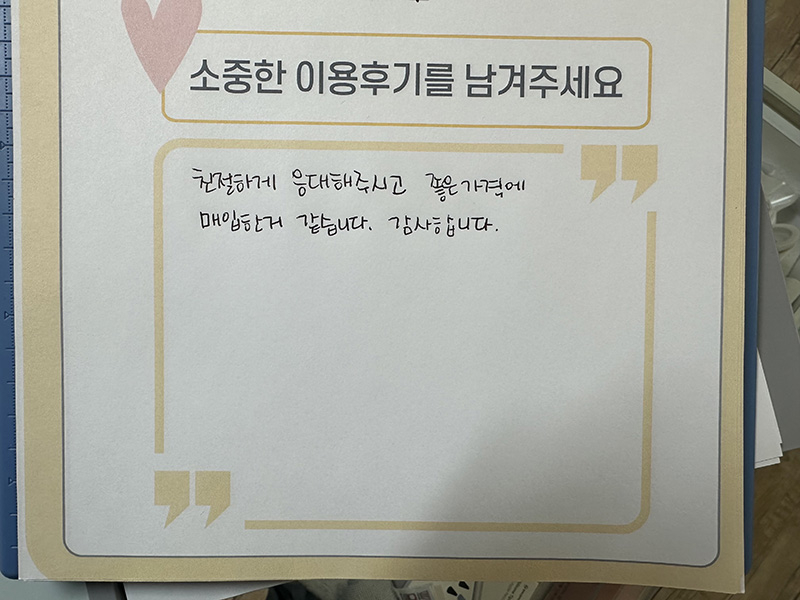 소중한 이용후기를 남겨주세요
친절하게 응대해주시고 좋은가격에
매입한거 같습니다. 감사합니다.